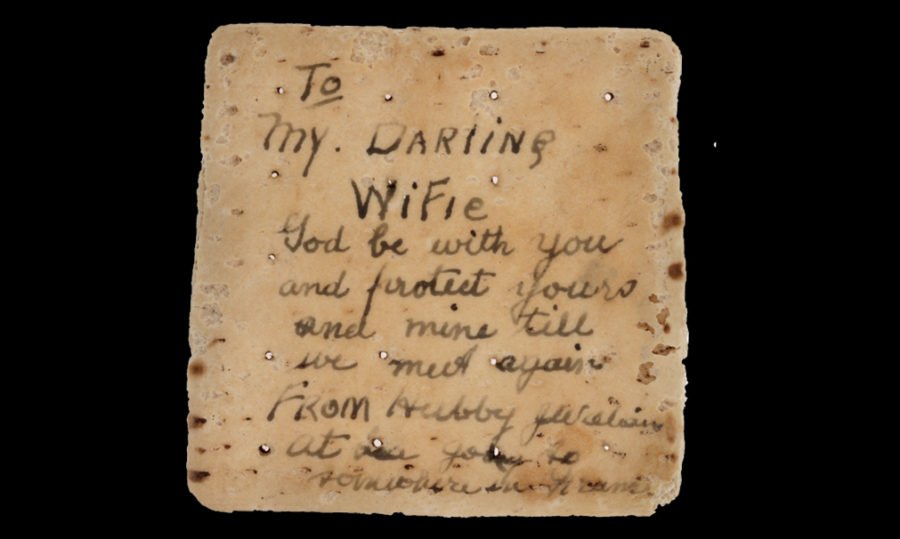 To
My. DARliNg
WiFie
God be with you
and protect yours
and mine till
we meet again
FROM Hubby
at sea going to
somewhere in France